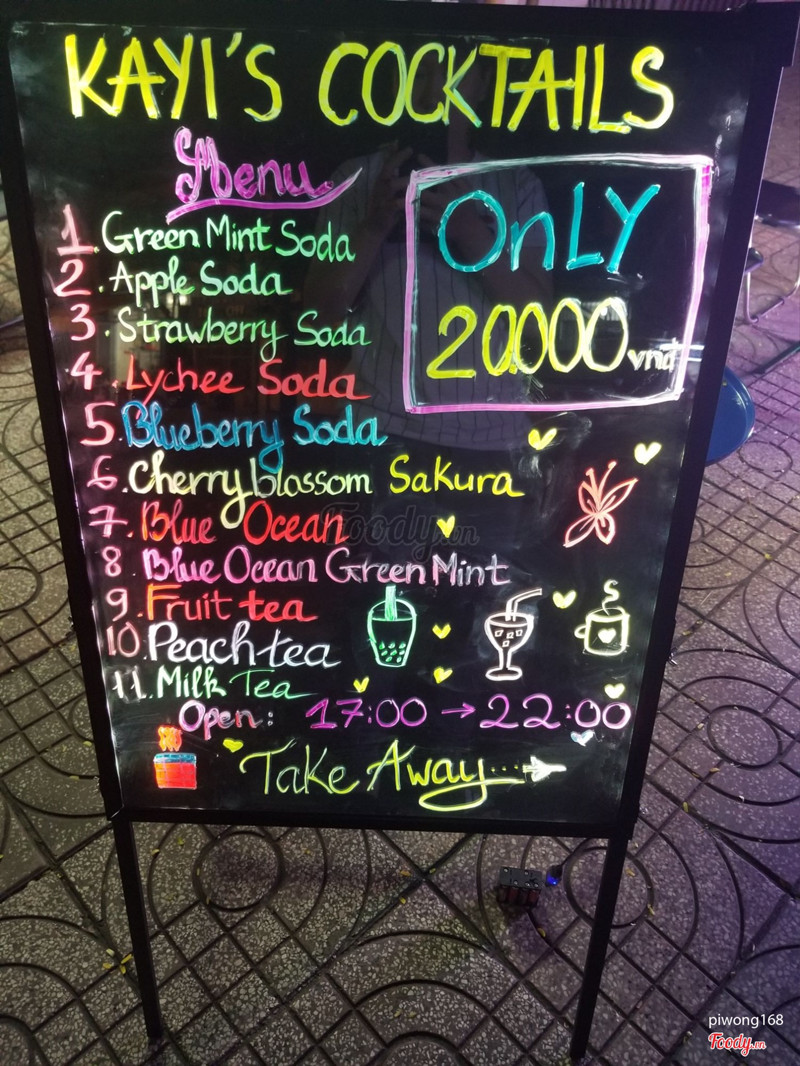 KAYI'S COCKTAILS
Menu
OnLY
20.000 vnđ
1. Green Mint Soda
2. Apple Soda
3. Strawberry Soda
4. Lychee Soda
5. Blueberry Soda
6. Cherryblossom Sakura
7. Blue Ocean
8 Blue Ocean Green Mint
9. Fruit tea
10. Peach tea
11. Milk Tea
Open: 17:00 → 22:00
Take Away...
Foody.vn
piwong168
Foody.vn